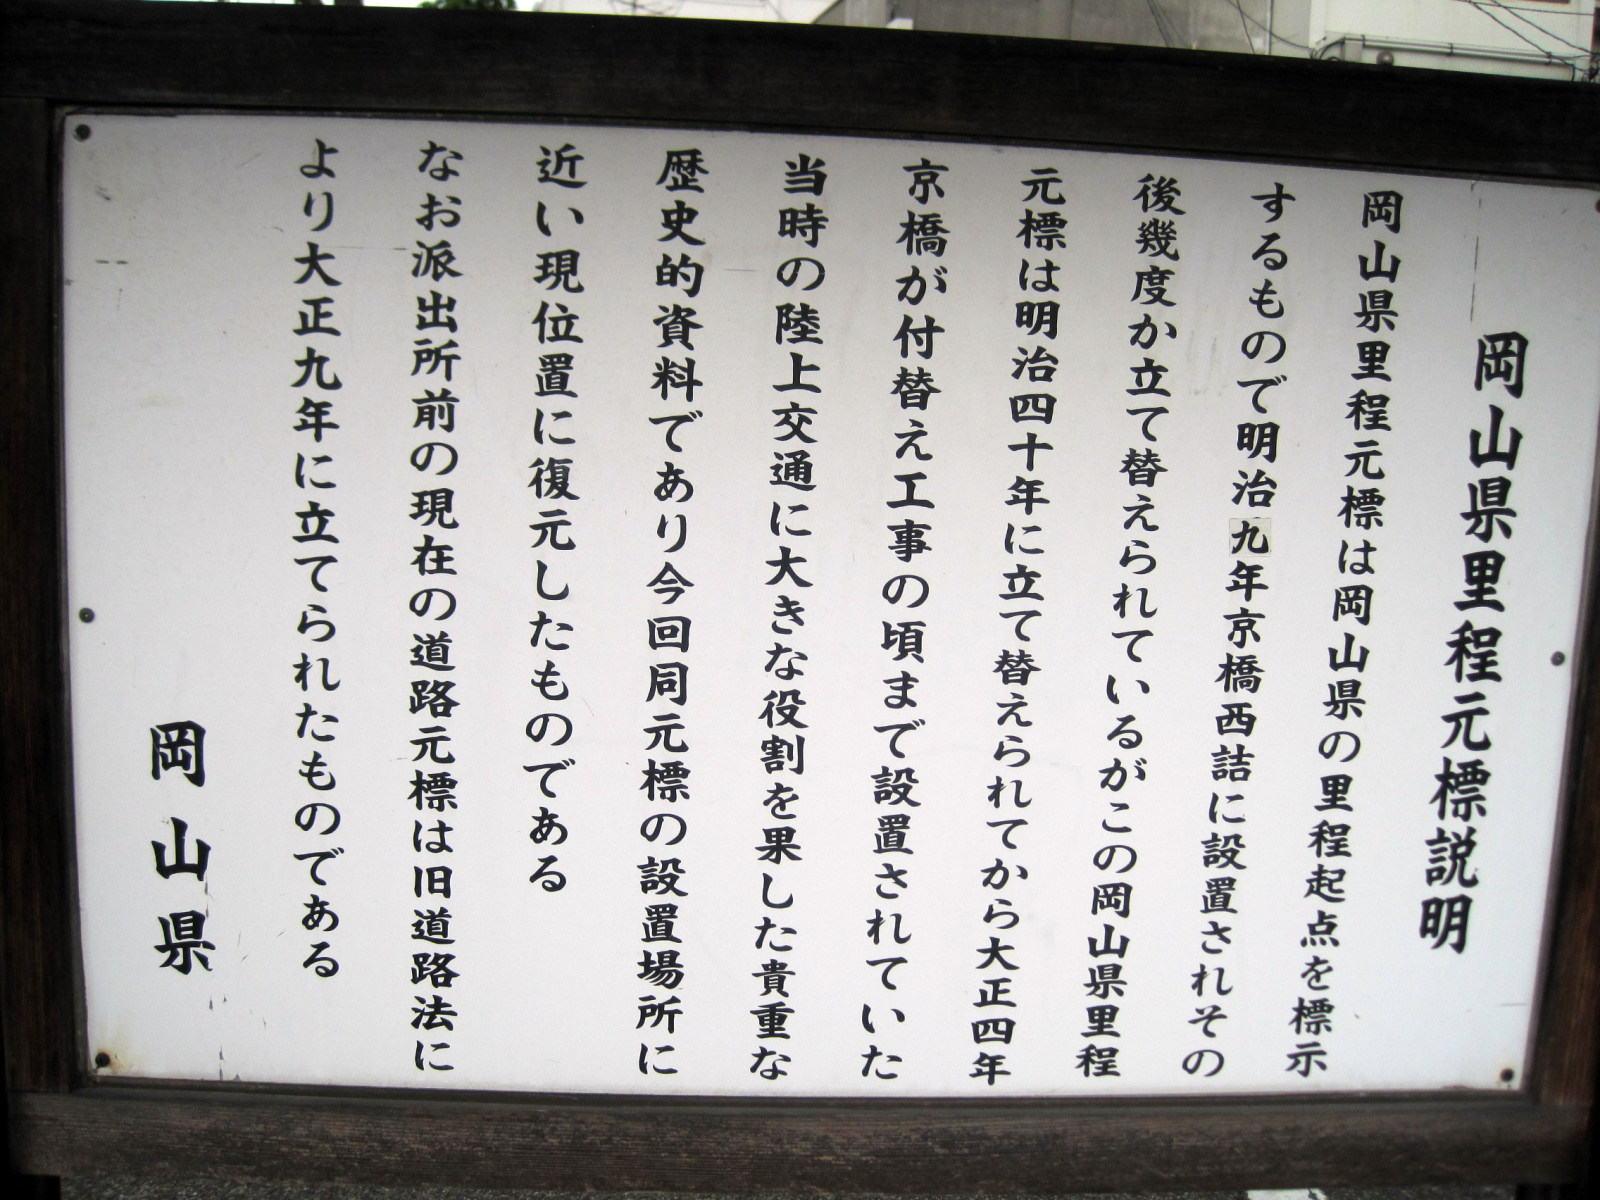 岡山県里程元標説明
岡山県里程元標は岡山県の里程起点を標示
するもので明治九年京橋西詰に設置されその
後幾度か立て替えられているがこの岡山県里程
元標は明治四十年に立て替えられてから大正四年
京橋が付替え工事の頃まで設置されていた
当時の陸上交通に大きな役割を果した貴重な
歴史的資料であり今回同元標の設置場所に
近い現位置に復元したものである
なお派出所前の現在の道路元標は旧道路法に
より大正九年に立てられたものである
岡山県